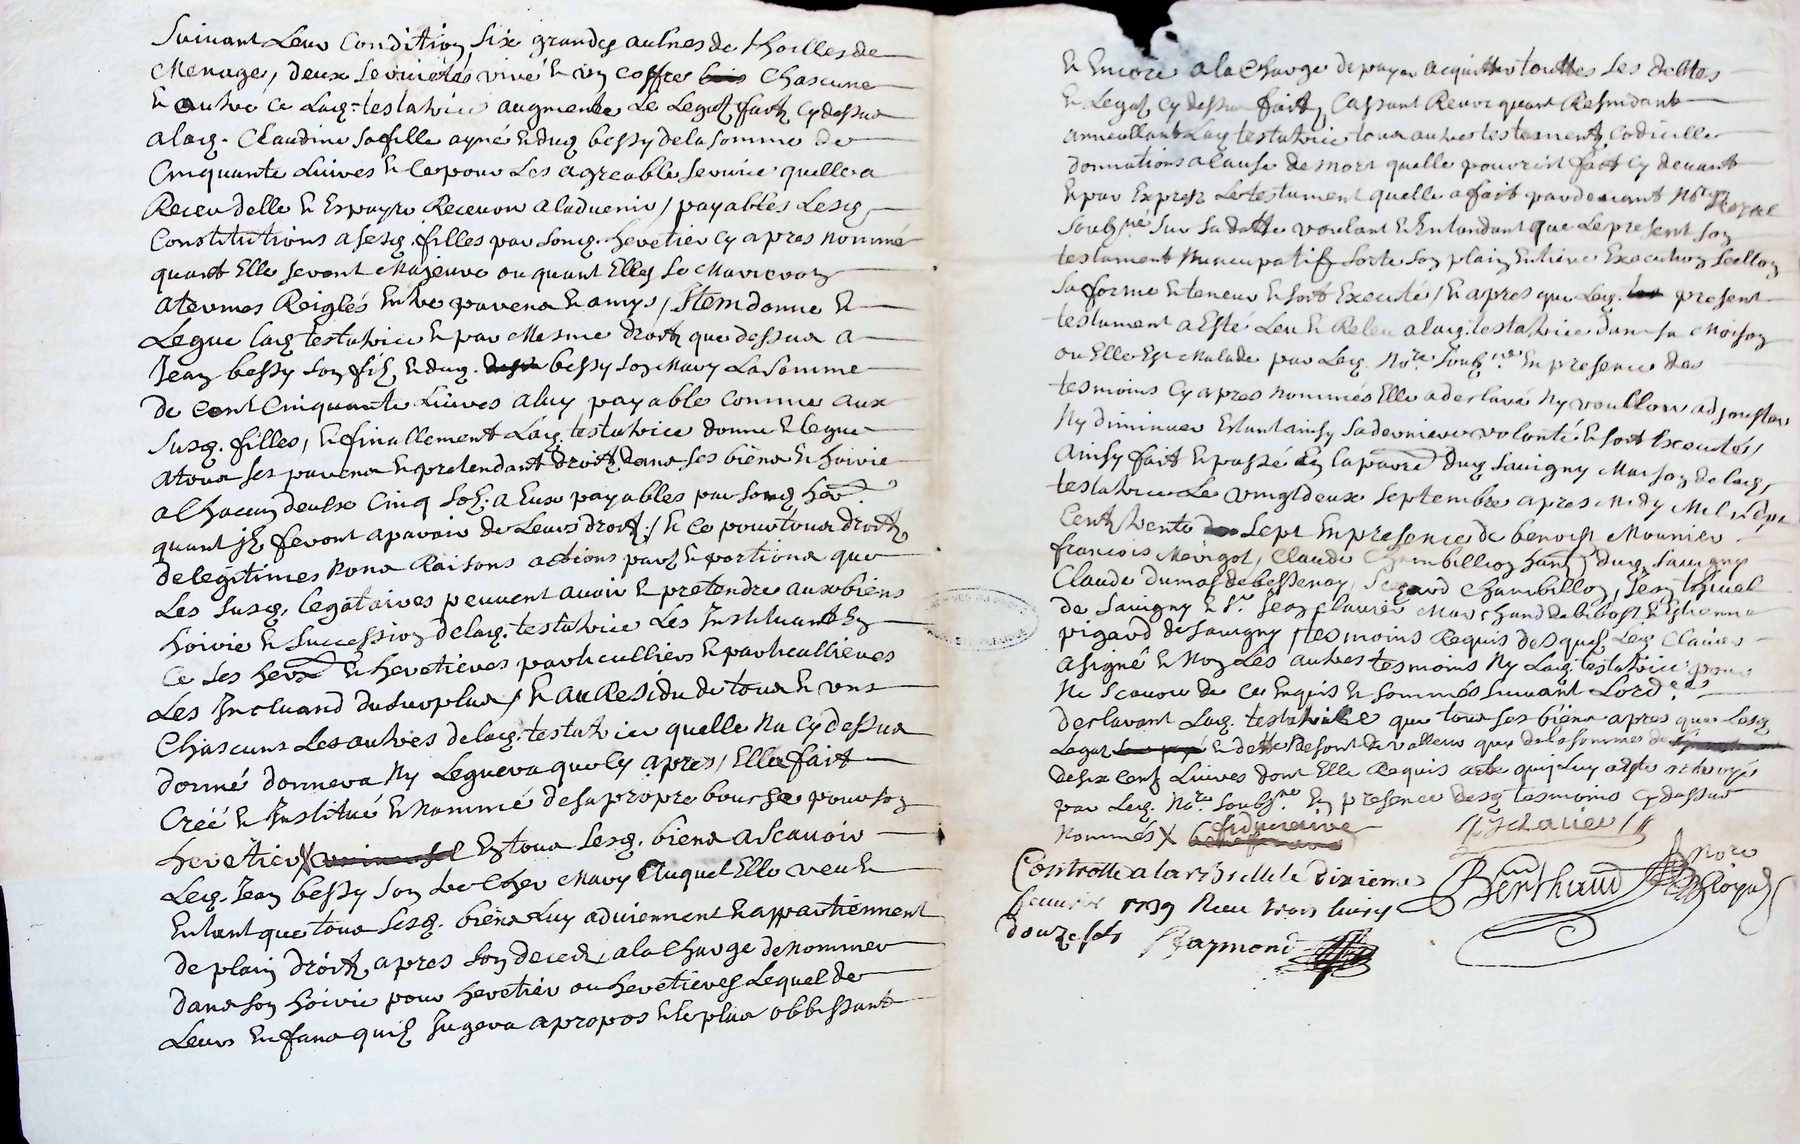 Suivant Leur Condition Six grandes aulnes de thoilles de
Menage, deux Serviettes vive & un coffre bois Chascune
& outre ce Lad. testatrice augmente Le Legat fait cy dessus
a lad. Claudine sa fille ayné & dud bessy de la somme de
Cinquante Livres & ce pour Les agreable Service quelle a
Receu delle & Espayre Recevoir a laduenir, payables Lesd.
Constitutions a sesd. filles par Sond. heretier cy apres nommé
quant Elle seront Majeure ou quant Elles Se Marieron
a termes Reiglés Entre parena & amys, Item donne &
Legue lad testatrice & par Mesme droit que dessus a
Jean bessy son fis & dud. bessy son Mary La Somme
de Cent Cinquante Livres a luy payable Comme aux
Susd. filles, & finallement Lad. testatrice donne & legue
a tous ses parens & pretendant droit dans ses biens & hoirie
a Chacun deulx Cinq Sols a Eux payables par Sond her.
quant jls feront aparoir de Leurs droit, & ce pour tous droits
de legitimes Noms Raisons actions parts & portions que
Les Susd. legataires peuvent avoir & pretendre aux biens
hoirie & Succession de lad. testatrice Les Instituant En
Ce ses hers & heretieres particulliers & particullieres
Les Excluand du Surplus, & au Residu de tous & uns
Chascuns Les autres de lad. testatrice quelle Na cy dessus
donné donnera Ny Leguera que cy apres, Elle a fait
Créé & Institué & Nommé de sa propre bouche pour son
heretier X universel En tous Sesd. biens a Scavoir
Led. Jean bessy Son dt Cher Mary Auquel Elle veut
Entant que tous Sesd. biens Luy adviennent & appartiennent
de plain droit apres Son deced, a la Charge de nommer
dans Son hoirie pour heretier ou heretieres Lequel de
Leurs Enfans quil Jugera a propos & le plus obbeissant
& Encore a la Charge de payer acquitter touttes Les debtes
& Legat Cy dessus fait, Cassant Revocquant Resindant
annullant Lad testatrice tous autres testement Codicille
donnations a Cause de mort quelle pouroit fait Cy devant
& par Expres Le testament quelle a fait pardevant No.re Royal
Soub.né Sur Sa datte voulant & Entandant que Le present Son
testament Nuncupatif Sorte Son plain Entiere Execution Seellon
Sa forme & teneur & soit Executé, & apres que Led. present
testament a Esté Leu & Releu a lad. testatrice dans sa Maison
ou Elle Est Malade par Led. No.re Soub.né En presence des
tesmoins Cy apres nommés Elle a declaré Ny voulloir adjouster
Ny diminuer Estant ainsy Sa derniere volonté & soit Executés,
ainsy fait & passé En la parr dud Savigny Maison de lad.
testatrice Le vingt deux Septembre apres Midy Mil Sept
Cent trente Sept En presence de benoist Mounier
francois Merigot, Claude Chambillion hant dud. Savigny
Claude dumas de bessenay, Chambillon,
de Savigny & Sr Jean Clavier Marchand de bibost & Estienne
pigard de Savigny, tesmoins Requis desquels Led. Clavier
a signé & Non Les autres tesmoins Ny Lad. testatrice pour
Ne Scavoir de ce Enquis & Sommés Suivant Lord.ces
declarant Lad. testatrice que tous ses biens apres que Lesd
Legat & dette desont de valleur que de la somme de
de six Cent Livres dont Elle Requis acte quy Luy a este octroyé
par Led. No.re Soub.né En presence desd tesmoins Cy dessus
Nommés X fiduciaire
J Clavier
Berthaud Nore Royal
Controlle a la le dixieme
fevrier 1739 Receu trois livres
douze sols Raymond